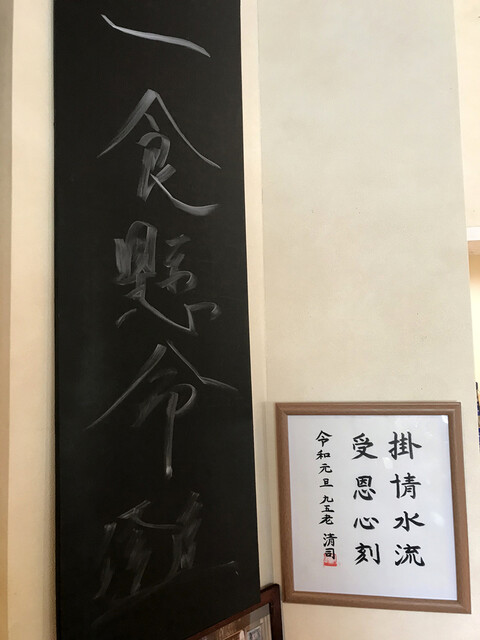 一食懸命
掛情水流
受恩心刻
令和元旦 九五老 清司